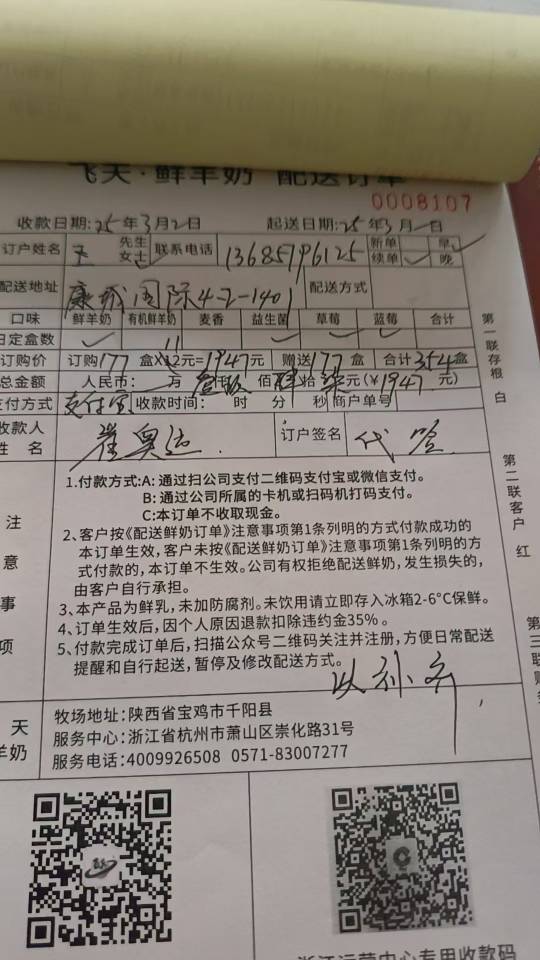 飞天·鲜羊奶 配送订单
0008107
收款日期:25年3月2日 起送日期:25年3月 日
订户姓名 王 先生 女士 联系电话 13685796125 新单 早
续单 晚
配送地址 康城国际4-2-1401 配送方式
口味 鲜羊奶 有机鲜羊奶 麦香 益生菌 草莓 蓝莓 合计
日定盒数
订购价 订购177盒X12元=1947元 赠送177盒 合计354盒
11
总金额 人民币: 万 壹仟 玖佰 肆拾 柒元(¥1947元)
支付方式 支付宝 收款时间: 时 分 秒 商户单号
收款人姓名 崔奥运 订户签名 代
第一联存根 白
第二联客户 红
第三联财务
注意事项
1.付款方式:A:通过扫公司支付二维码支付宝或微信支付。
B:通过公司所属的卡机或扫码机打码支付。
C:本订单不收取现金。
2、客户按《配送鲜奶订单》注意事项第1条列明的方式付款成功的
本订单生效,客户未按《配送鲜奶订单》注意事项第1条列明的方
式付款的,本订单不生效。公司有权拒绝配送鲜奶,发生损失的,
由客户自行承担。
3、本产品为鲜乳,未加防腐剂。未饮用请立即存入冰箱2-6°C保鲜。
4、订单生效后,因个人原因退款扣除违约金35%。
5、付款完成订单后,扫描公众号二维码关注并注册,方便日常配送
提醒和自行起送,暂停及修改配送方式。
以补齐
天
羊奶
牧场地址:陕西省宝鸡市千阳县
服务中心:浙江省杭州市萧山区崇化路31号
服务电话:4009926508 0571-83007277
浙江运营中心专用收款码